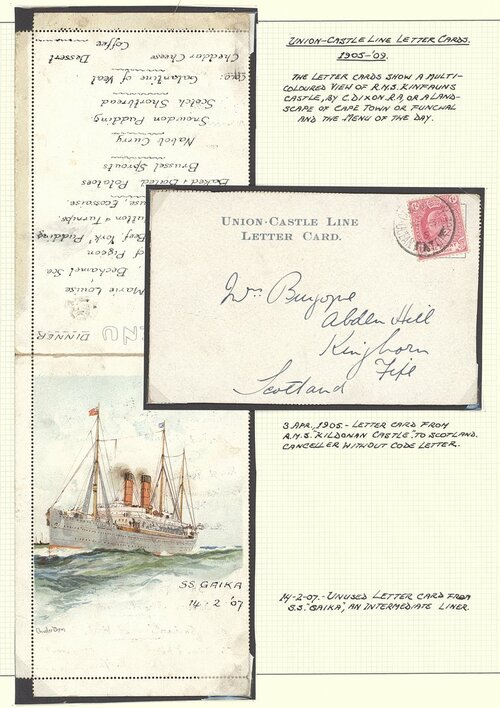 UNION-CASTLE LINE LETTER CARDS.
1905-'09.
THE LETTER CARDS SHOW A MULTI-
COLOURED VIEW OF R.M.S. KINFAUNS
CASTLE, BY C. DIXON R.A, OR A LAND-
SCAPE OF CAPE TOWN OR FUNCHAL
AND THE MENU OF THE DAY.
DINNER
Marie Louise
Bechamel
of Pigeon
Beef, York Pudding
Mutton & Turnips.
Baked & Boiled Potatoes
Brussel Sprouts
Nabob Curry
Snowden Pudding
Scotch Shortbread
Galantine of Veal
Cheddar Cheese Dessert
Coffee
UNION-CASTLE LINE
LETTER CARD.
Abden Hill
Kinghorn
Fife
Scotland
3 APR, 1905.- LETTER CARD FROM
R.M.S. "KILDONAN CASTLE" TO SCOTLAND.
CANCELLER WITHOUT CODE LETTER.
SS. GAIKA
14. 2. 07
14-2-07.- UNUSED LETTER CARD FROM
S.S. "GAIKA", AN INTERMEDIATE LINER.